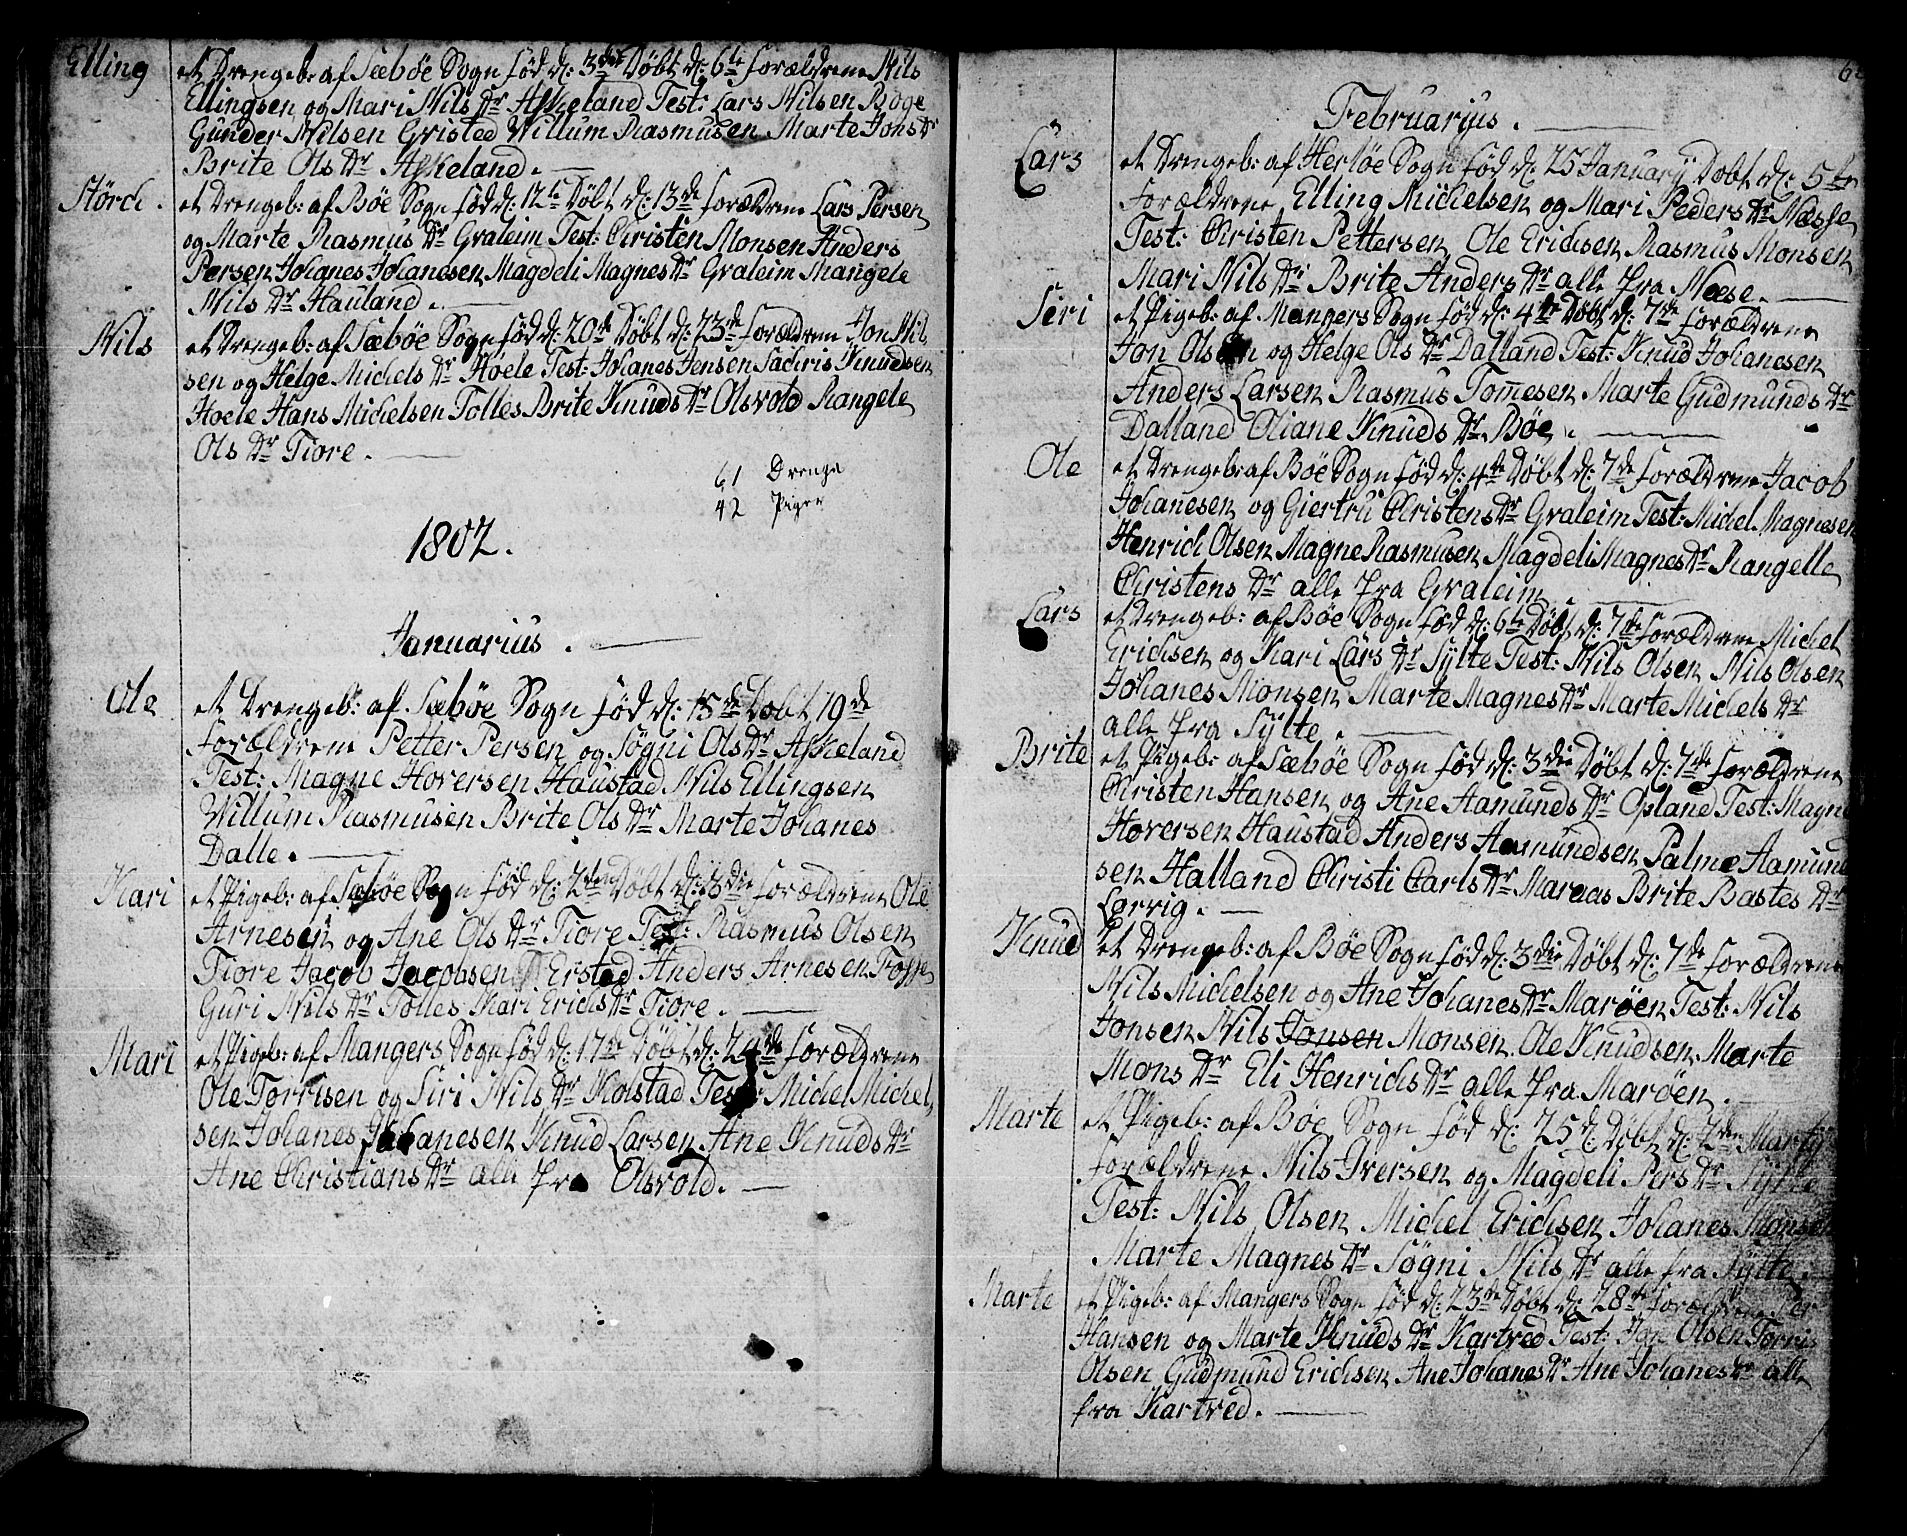 Elling et Drengeb: af Sæbøe Sogn fød d: 3die Døbt d: 6te Forældrene Nils
Ellingsen og Mari Nils Dr Askeland Test: Lars Nilsen Bøge
Gunder Nilsen Gristed Willum Rasmusen Marte Jons Dr
Brite Ols Dr Askeland.
Störck. et Drengeb: af Bøe Sogn fød d: 12te Døbt d: 13de Forældrene Lars Persen
og Marte Rasmus Dr Gvaleim Test: Christen Monsen Anders
Persen Johanes Johanesen Magdeli Magnes Dr Gvaleim Mangele
Nils Dr Hauland.
Nils et Drengeb: af Sæbøe Sogn fød d: 20de Døbt d: 23de Forældrene Jon Nil,
sen og Helge Michels Dr Høele Test: Johanes Jensen Sachris Knudsen
Hoele Hans Michelsen Tolles Brite Knuds Dr Olsvold Rangele
Ols Dr Tiore.
61 Drenge
42 Piger
1802.
Januarius.
Ole et Drengeb: af Sæbøe Sogn fød d: 15de Døbt 19de
Forældrene Petter Persen og Søgni Ols Dr Askeland
Test: Magne Hoversen Haustad Nils Ellingsen
Willum Rasmusen Brite Ols Dr Marte Johanes
Dalle.
Kari et Pigeb: af Sæbøe Sogn fød d: 2den Døbt d: 3die Forældrene Ole
Arnesen og Ane Ols Dr Tiore Test: Rasmus Olsen
Tiore Jacob Jacobsen Erstad Anders Arnesen Fosse
Guri Nils Dr Tolles Kari Erichs Dr Tiore.
Mari et Pigeb: af Mangers Sogn fød d: 17de Døbt d: 24de Forældrene
Ole Torrisen og Siri Nils Dr Kolstad Test: Michel Michel,
sen Johanes Johanesen Knud Larsen Ane Knuds Dr
Ane Christians Dr alle fra Olsvold.
6
Februarius.
Lars et Drengeb: af Herløe Sogn fød d: 25 January Døbt d: 5te
Forældrene Elling Michelsen og Mari Peders Dr Næsse
Test: Christen Pettersen Ole Erichsen Rasmus Monsen
Mari Nils Dr Brite Anders Dr alle fra Næse.
Siri et Pigeb: af Mangers Sogn fød d: 4te Døbt d: 7de Forældrene
Jon Olsen og Helge Ols Dr Dalland Test: Knud Johanesen
Anders Larsen Rasmus Tomesen Marte Gudmunds Dr
Dalland Oliane Knuds Dr Bøe.
Ole et Drengeb: af Bøe Sogn fød d: 4de Døbt d: 7de Forældrene Jacob
Johanesen og Giertru Christens Dr Gvaleim Test: Michel Magnesen
Henrich Olsen Magne Rasmusen Magdeli Magnes Dr Rangelle
Christens Dr alle fra Gvaleim.
Lars et Drengeb: af Bøe Sogn fød d: 6te Døbt d: 7de Forældrene Michel
Erichsen og Kari Lars Dr Sylte Test: Nils Olsen Nils Olsen
Johanes Monsen Marte Magnes Dr Marte Michels Dr
alle fra Sylte.
Brite et Pigeb: af Sæbøe Sogn fød d: 3die Døbt d: 7de Forældrene
Christen Hansen og Ane Aamunds Dr Opland Test: Magne
Hoversen Haustad Anders Aamundsen Palme Aamund
sen Halland Christi Carls Dr Maraas Brite Bastes Dr
Larvig.
Knud et Drengeb: af Bøe Sogn fød d: 3die Døbt d: 7de Forældrene
Nils Michelsen og Ane Johanes Dr Marøen Test: Nils
Jonsen Nils Jonsen Monsen Ole Knudsen Marte
Mons Dr Eli Henrichs Dr alle fra Marøen.
Marte et Pigeb: af Bøe Sogn fød d: 25 d: Døbt d: 2den Marty
Forældrene Nils Iversen og Magdeli Pers Dr Sylte
Test: Nils Olsen Michel Erichsen Johanes Monsen
Marte Magnes Dr Søgni Nils Dr alle fra Sylte.
Marte et Pigeb: af Mangers Sogn fød d: 23de Døbt d: 28de Forældrene Per
Hansen og Marte Knuds Dr Kartved Test: Jon Olsen Torris
Olsen Gudmund Erichsen Ane Johanes Dr Ane Johanes Dr alle
fra Kartved.